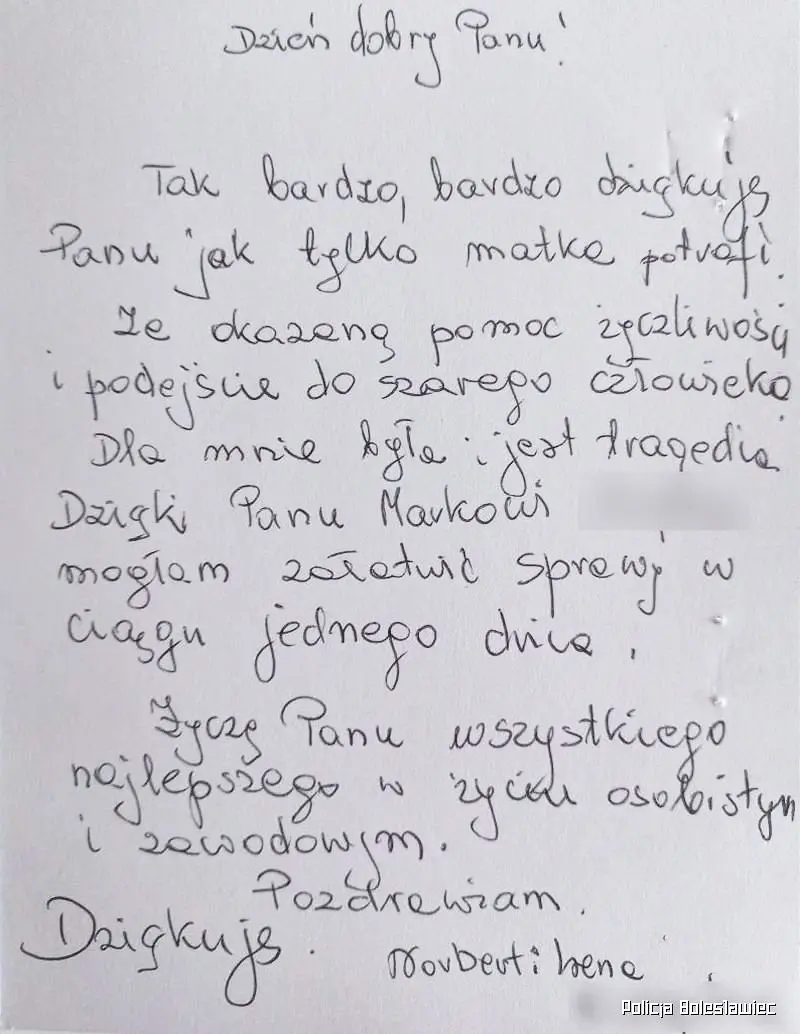 Dzień dobry Panu!
Tak bardzo, bardzo dziękuję
Panu jak tylko matka potrafi.
Ze okazaną pomoc życzliwość
i podejście do szarego człowieka
Dla mnie była i jest tragedia
Dzięki Panu Markowi
mogłam załatwić sprawy w
ciągu jednego dnia.
Życzę Panu wszystkiego
najlepszego w życiu osobistym
i zawodowym.
Pozdrawiam.
Dziękuję. Norbert i Irena
Policja Bolesławiec